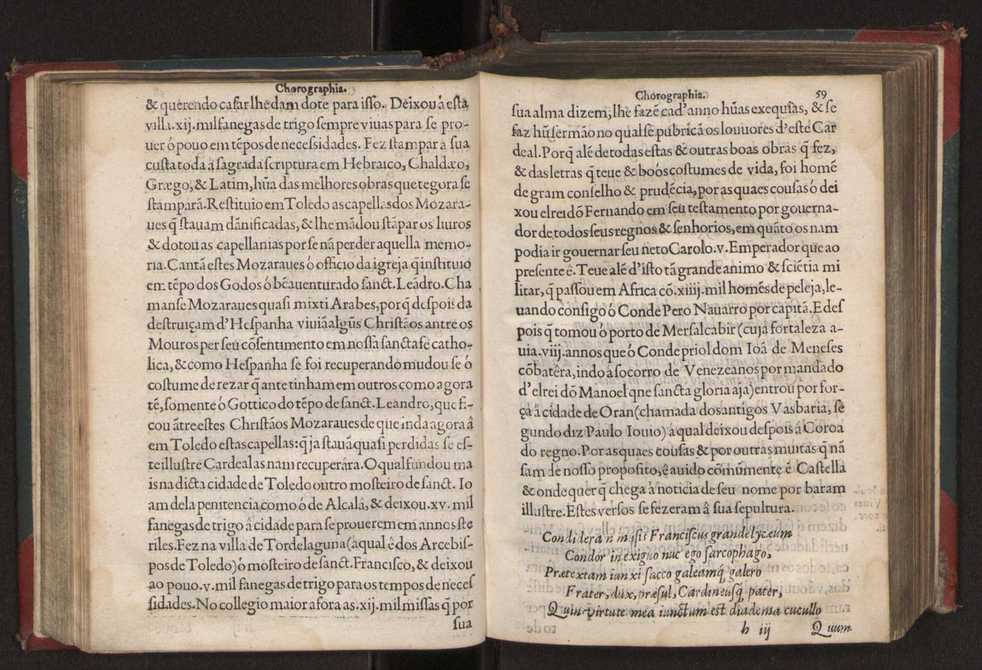 Chorographia.
& querendo casar lhe dam dote para isso. Deixou â esta
villa. xij. mil fanegas de trigo sempre viuas para se pro-
uer ó pouo em tẽpos de necessidades. Fez stampar à sua
custa toda â sagrada scriptura em Hebraico, Chaldæo,
Grægo, & Latim, hũa das melhores obras que tegora se
stamparã. Restituio em Toledo as capellas dos Mozara-
ues q̃ stauam dãnificadas, & lhe mãdou stãpar os liuros
& dotou as capellanias por se nã perder aquella memo-
ria. Cantã estes Mozaraues ó officio da igreja q̃ instituio
em tẽpo dos Godos ó bẽauenturado sanct. Leãdro. Cha
manse Mozaraues quasi mixti Arabes, porq̃ despois da
destruiçam d'Hespanha viuiã algũs Christãos antre os
Mouros per seu cõsentimento em nossa sancta fé catho-
lica, & como Hespanha se foi recuperando mudou se ó
costume de rezar q̃ ante tinham em outros como agora
tẽ, somente ó Gottico do tẽpo de sanct. Leandro, que fi-
cou ãtre estes Christãos Mozaraues de que inda agora â
em Toledo estas capellas: q̃ ja stauã quasi perdidas se es-
te illustre Cardeal as nam recuperára. O qual fundou ma
is na dicta cidade de Toledo outro mosteiro de sanct. Io
am de la penitencia como ó de Alcalá, & deixou. xv. mil
fanegas de trigo â cidade para se prouerem em annos ste
riles. Fez na villa de Tordelaguna (a qual ê dos Arcebis-
pos de Toledo) ó mosteiro de sanct. Francisco, & deixou
ao pouo. v. mil fanegas de trigo para os tempos de neces
sidades. No collegio maior afora as. xij. mil missas q̃ por
sua
Chorographia. 59
sua alma dizem, lhe fazẽ cad'anno hũas exequias, & se
faz hũ sermão no qual se pubricã os louuores d'este Car
deal. Porq̃ alẽ de todas estas & outras boas obras q̃ fez,
& das letras q̃ teue & boõs costumes de vida, foi homẽ
de gram conselho & prudẽcia, por as quaes cousas ó dei
xou elrei dõ Fernando em seu testamento por gouerna-
dor de todos seus regnos & senhorios, em quãto os nam
podia ir gouernar seu neto Carolo. v. Emperador que ao
presente ê. Teue alẽ d'isto tã grande animo & sciẽtia mi
litar, q̃ passou em Africa cõ. xiiij. mil homẽs de peleja, le-
uando consigo ó Conde Pero Nauarro por capitã. E des
pois q̃ tomou ó porto de Mersalcabir (cuja fortaleza a-
uia. viij. annos que ó Conde priol dom Ioã de Meneses
cõbatêra, indo â socorro de Venezeanos por mandado
d'elrei dõ Manoel que sancta gloria aja) entrou por for-
ça â cidade de Oran (chamada dos antigos Vasbaria, se
gundo diz Paulo Iouio) à qual deixou despois á Coroa
do regno. Por as quaes cousas & por outras muitas q̃ nã
sam de nosso proposito, ê auido cõmumente ẽ Castella
& onde quer q̃ chega â noticia de seu nome por baram
illustre. Estes versos se fezeram â sua sepultura.
Condideram musis Franciscus grande lyceum
Condor in exiguo nũc ego sarcophago,
Prætextam iunxi sacco galeamq̃ galero
Frater, dux, præsul, Cardineusq̃ pater,
Quin virtute mea iunctum est diadema cucullo
h iij Quum